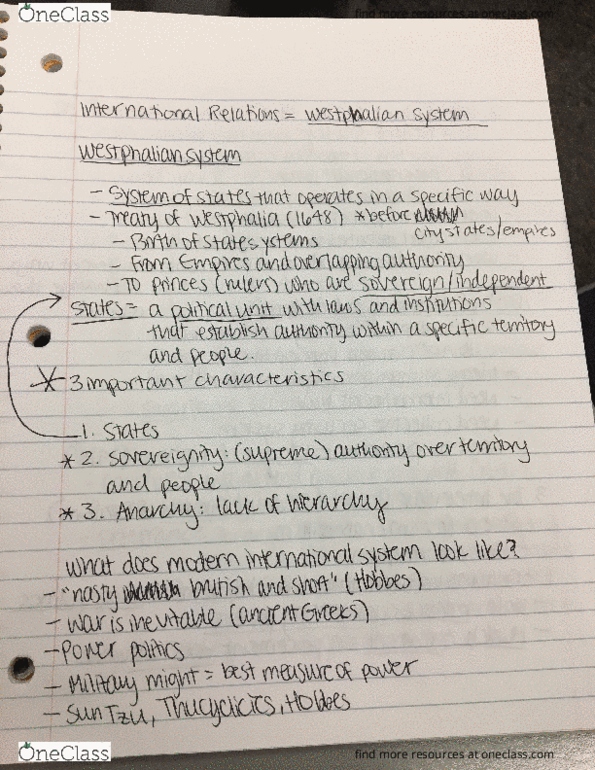 OneClass
find more resources at oneclass.com
International Relations = westphalian system
westphalian system
- System of states that operates in a specific way
- Treaty of Westphalia (1648) *before
city states/empires
- Birth of state systems
- From Empires and overlapping authority
- TO princes (rulers) who are sovereign/independent
states = a political unit with laws and institutions
that establish authority within a specific territory
and people.
* 3 important characteristics
1. States
* 2. Sovereignity: (supreme) authority over territory
and people
* 3. Anarchy: lack of hierarchy
what does modern international system look like?
- "nasty brutish and short" (Hobbes)
- war is inevitable (ancient Greeks)
- Power politics
- Military might = best measure of power
- Sun Tzu, Thucydides, Hobbes
OneClass
find more resources at oneclass.com